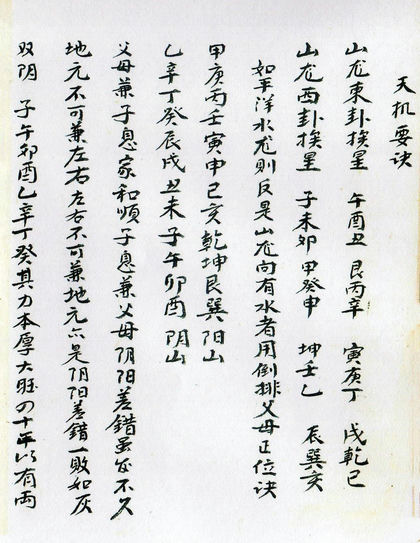 天机要诀
山龙東卦挨星 午酉丑 艮丙辛 寅庚丁 戌乾巳
山龙西卦挨星 子未卯 甲癸申 坤壬乙 辰巽亥
如平洋水龙则反是山龙向有水者用倒排父母正位诀
甲庚丙壬寅申巳亥乾坤艮巽阳山
乙辛丁癸辰戌丑未子午卯酉阴山
父母兼子息家和順子息兼父母阴阳差错虽发不久
地元不可兼左右左右不可兼地元亦是阴阳差错一败如灰
双阴 子午卯酉乙辛丁癸其力本厚大旺四十年以有两